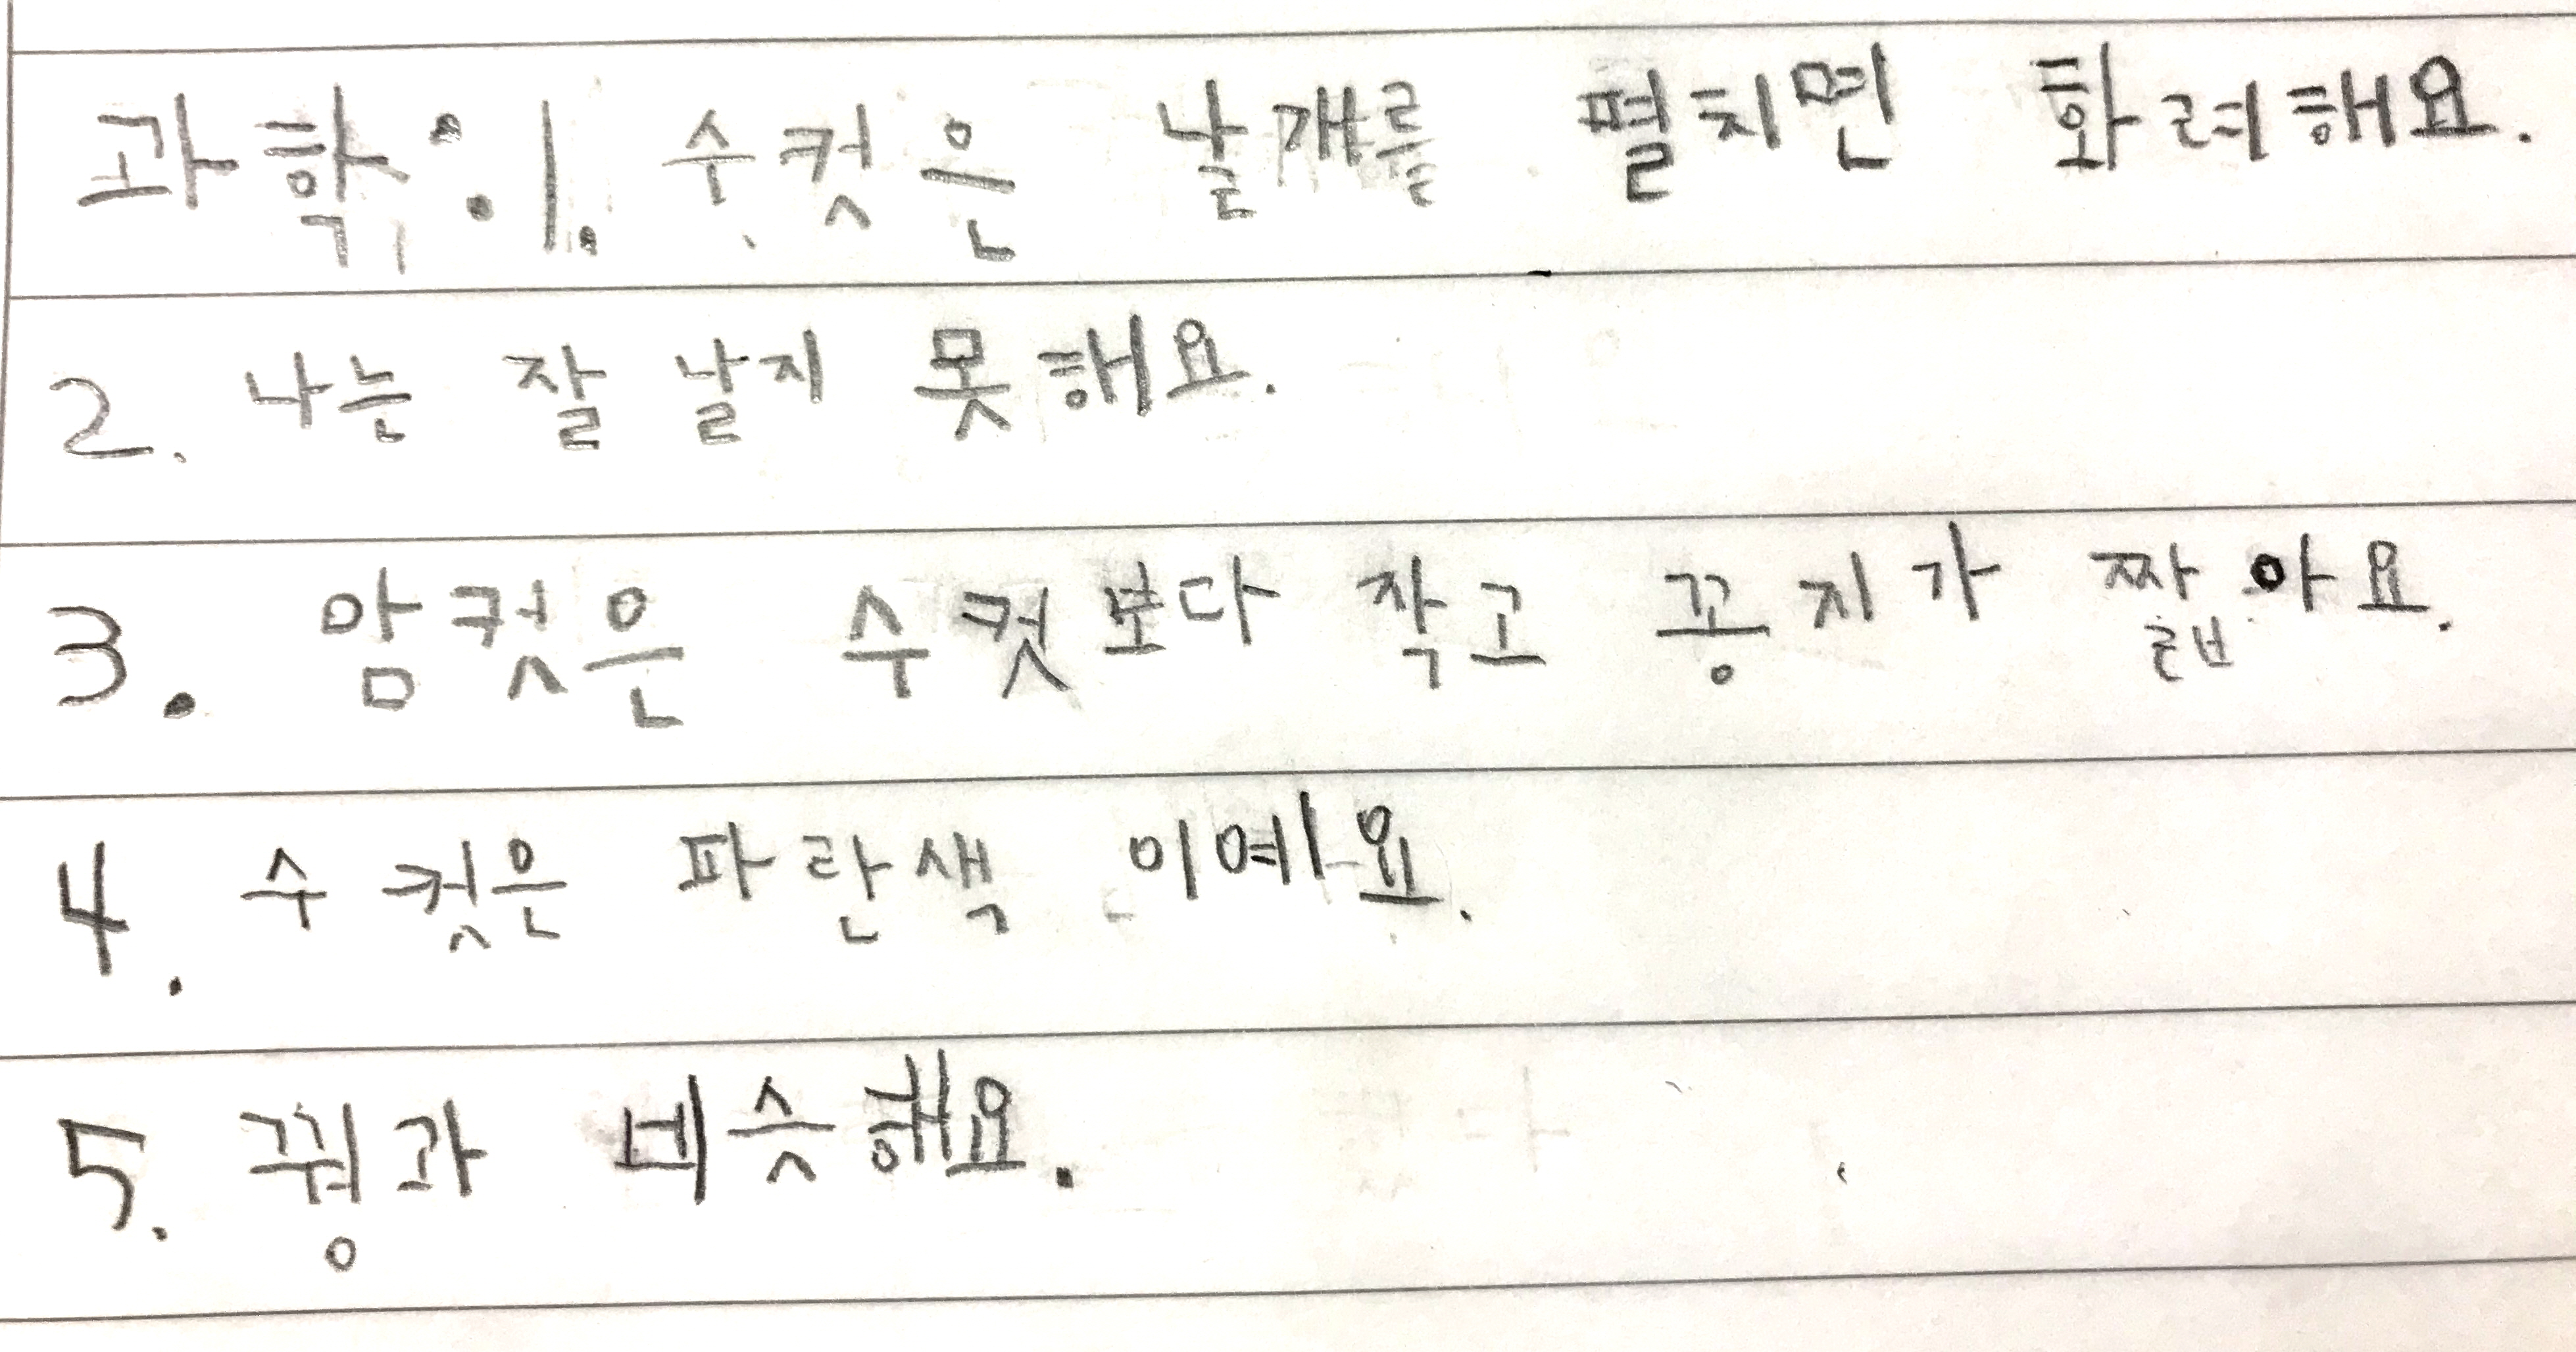 과학:1. 수컷은 날개를 펼치면 화려해요.
2. 나는 잘 날지 못해요.
3. 암컷은 수컷보다 작고 꽁지가 짧아요.
4. 수컷은 파란색 이예요.
5. 꿩과 비슷해요.